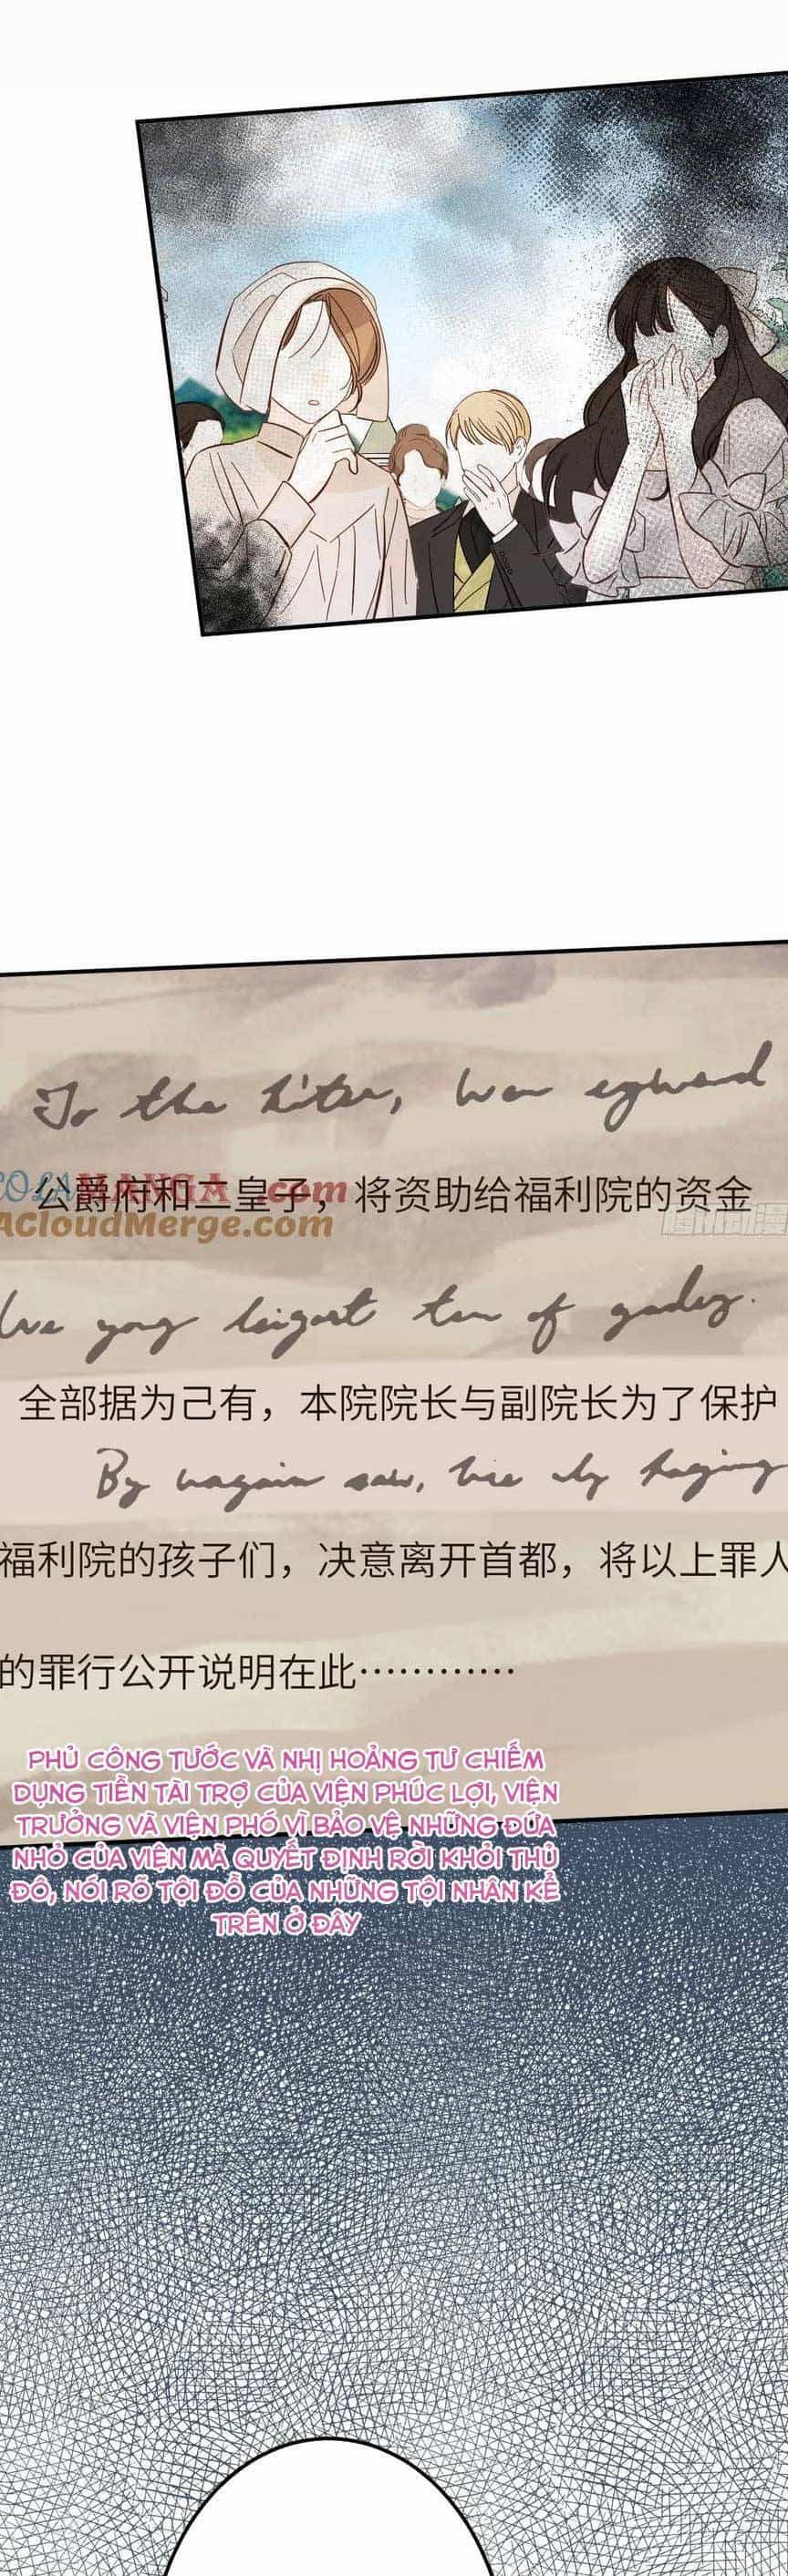 To the
公爵府和二皇子，将资助给福利院的资金
COLAMANGA.com
AcloudMerge.com
of
全部据为己有，本院院长与副院长为了保护
By
福利院的孩子们，决意离开首都，将以上罪人
的罪行公开说明在此…………
PHỦ CÔNG TƯỚC VÀ NHỊ HOẢNG TƯ CHIẾM
DỤNG TIỀN TÀI TRỢ CỦA VIỆN PHÚC LỢI, VIỆN
TRƯỞNG VÀ VIỆN PHÓ VÌ BẢO VỆ NHỮNG ĐỨA
NHỎ CỦA VIỆN MÀ QUYẾT ĐỊNH RỜI KHỎI THỦ
ĐÔ, NÓI RÕ TỘI ĐỒ CỦA NHỮNG TỘI NHÂN KỂ
TRÊN Ở ĐÂY